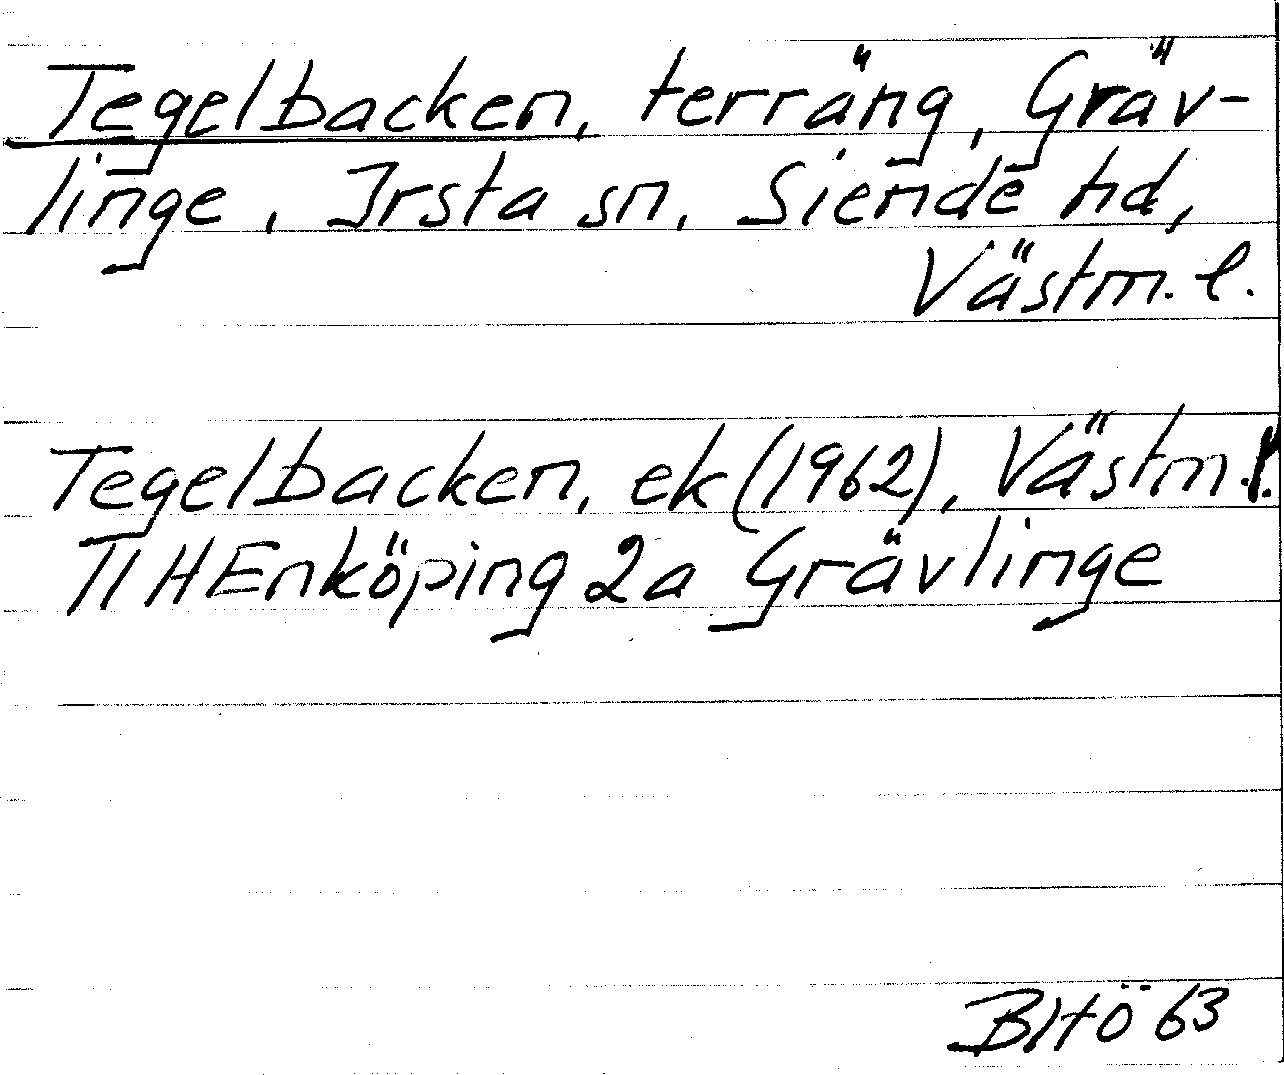 Tegelbacken, terräng, Gräv-
linge, Irsta sn, Siende hd,
Västm. l.
Tegelbacken, ek (1962), Västm. l.
TIHEnköping 2a Grävlinge
BHÖ 63